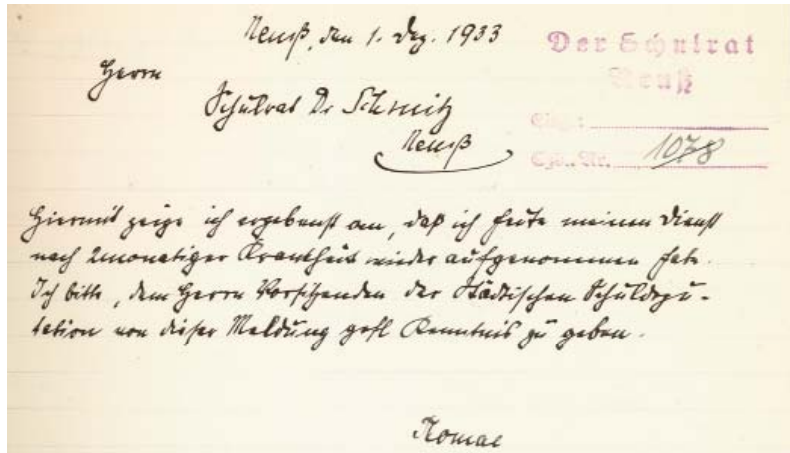 Neuß, den 1. Dez. 1933
Der Schulrat
Neuß
Herrn
Schulrat Dr Schmitz
Neuß
Eing.:
Tgb.-Nr. 1078
Hiermit zeige ich ergebenst an, daß ich heute meinen Dienst
nach 2monatiger Krankheit wieder aufgenommen habe.
Ich bitte, dem Herrn Vorsitzenden der Städtischen Schuldepu-
tation von dieser Meldung gefl Kenntnis zu geben.